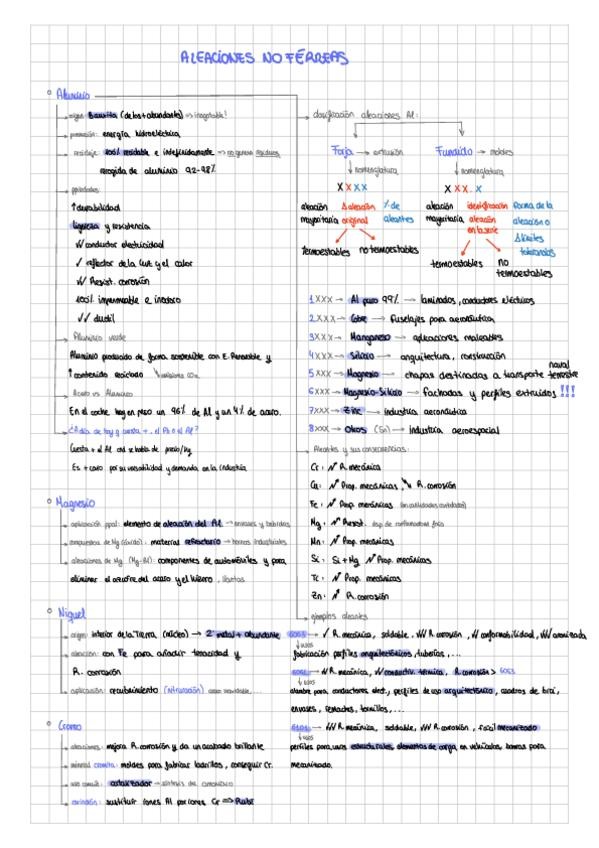 ALEACIONES NO FÉRREAS
Aluminio
origen: Bauxita (de los + abundante) => inagotable!
producción: energía hidroeléctrica
reciclaje: 100% reciclable e indefinidamente => no genera residuos
recogida de aluminio 92-98%
propiedades:
↑ durabilidad
ligereza y resistencia
√√ conductor electricidad
√ reflector de la luz y el calor
√√ Resist. corrosión
100% impermeable e inodoro
√√ ductil
Aluminio verde
Aluminio producido de forma sostenible con E. Renovable y
↑ contenido reciclado
Acero vs Aluminio
En el coche hay en peso un 96% de Al y un 4% de acero.
¿A día de hoy q cuesta + , el Pb o el Al?
Cuesta + el Al and se habla de precio/kg
Es + caro por su versatilidad y demanda en la industria
Magnesio
aplicación ppal: elemento de aleación del Al → envases y bebidas
compuestos de Mg (óxido): material refractario → hornos industriales
aleaciones de Mg: componentes de automóviles y para
eliminar el azufre del acero y el hierro, llantas
Níquel
origen: interior de la Tierra (núcleo) → 2º metal + abundante
aleación: con Fe para añadir tenacidad y
R. corrosión
aplicación: recubrimiento
Cromo
aleaciones: mejora R. corrosión y da un acabado brillante
mineral cromita: moldes para fabricar ladrillos, conseguir Cr.
uso común: catalizador → síntesis de amoníaco
corindón: sustituir iones Al por iones Cr => Rubí
clasificación aleaciones Al:
Forja → extrusión
Fundido → moldes
nomenclatura
nomenclatura
X X X X
X X X . X
aleación Δ aleación % de
mayoritaria original aleantes
aleación identificación forma de la
mayoritaria aleación aleación o
en la serie Δ límites
tolerables
termoestables no termoestables
termoestables no
termoestables
1XXX → Al puro 99% → laminados, conductores eléctricos
2XXX → Cobre → fuselajes para aeronáutica
3XXX → Manganeso → aplicaciones maleables
4XXX → Silicio → arquitectura, construcción
5XXX → Magnesio → chapas destinadas a transporte naval terrestre
6XXX → Magnesio-Silicio → fachadas y perfiles extruidos !!!
7XXX → Zinc → industria aeronáutica
8XXX → Otros (Sn) → Industria aeroespacial
Aleantes y sus consecuencias:
Cr: R. mecánica
Cu: Prop. mecánicas, R. corrosión
Fe: Prop. mecánicas (en cantidades controladas)
Mg: Resist. dsp. de conformado en frío
Mn: Prop. mecánicas
Si: Si + Mg Prop. mecánicas
Ti: Prop. mecánicas
Zn: R. corrosión
ejemplos aleantes
6063 → √ R. mecánica, soldable, √√√ R. corrosión, √√ conformabilidad, √√√ anodizado
usos
fabricación perfiles arquitectónicos, tuberías, ...
R. mecánica, √√ conductiv. térmica, R. corrosión > 6063
usos
alambre para conductores elect., perfiles de uso arquitectónico, cuadros de bici,
envases, remaches, tornillos, ...
→ √√ R. mecánica, soldable, √√√ R. corrosión, fácil mecanizado
usos
perfiles para usos estructurales, elementos de carga en vehículos, barras para
mecanizado.